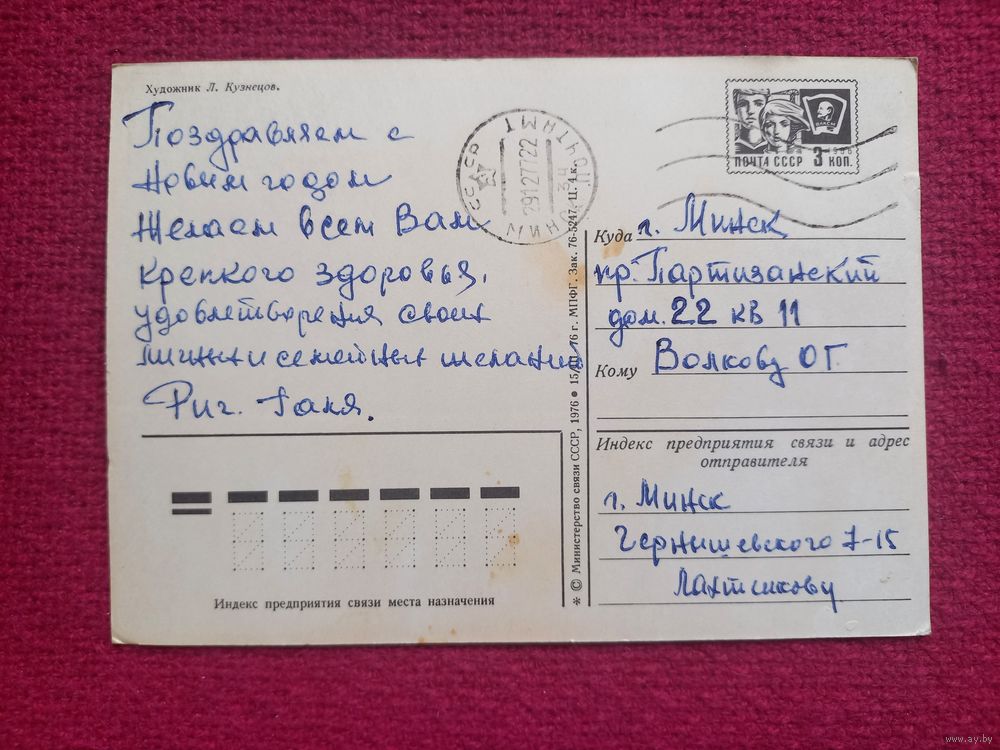 Художник Л. Кузнецов.
Поздравляем с
Новым годом
Желаем всем Вам
крепкого здоровья,
удовлетворения своих
личных и семейных желаний
Риг. Галя.
Индекс предприятия связи места назначения
* © Министерство связи СССР, 1976 • 15/III-76 г. МПФГ. Зак. 76-5247. Ц. 4 к.
МИНСК ПОЧТАМТ
БССР
29127722
ВЛКСМ
1966
ПОЧТА СССР 3 КОП.
Куда г. Минск
пр. Партизанский
дом. 22 кв 11
Кому Волкову О Г.
Индекс предприятия связи и адрес
отправителя
г. Минск
Чернышевского 7-15
www.ay.by